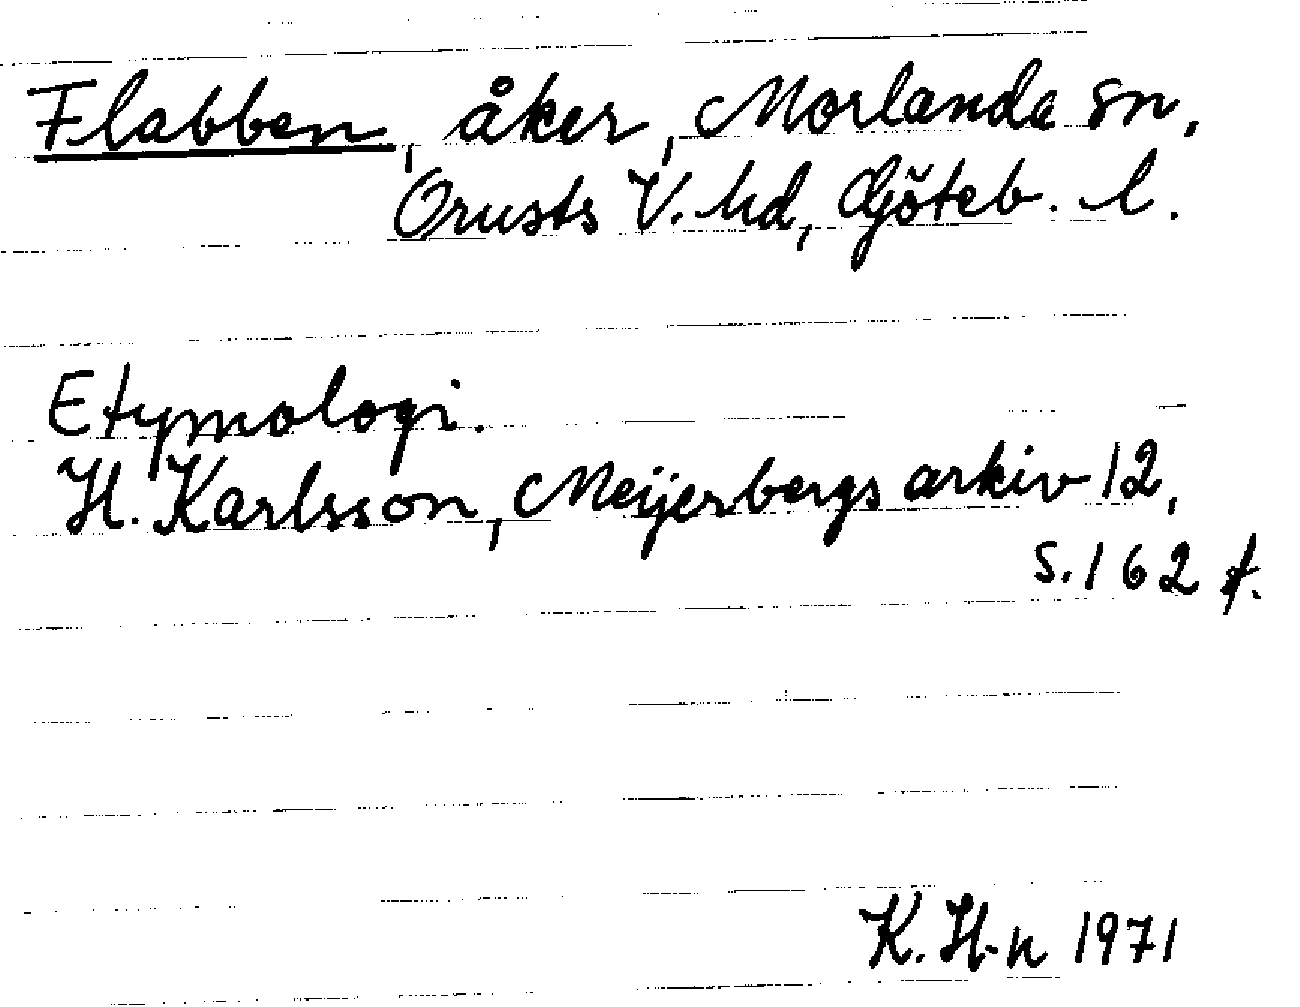 Flabben, åker, Morlanda sn,
Orusts V. hd, Göteb. l.
Etymologi.
H. Karlsson, Meijerbergs arkiv 12,
s. 162 f.
K. H-n 1971